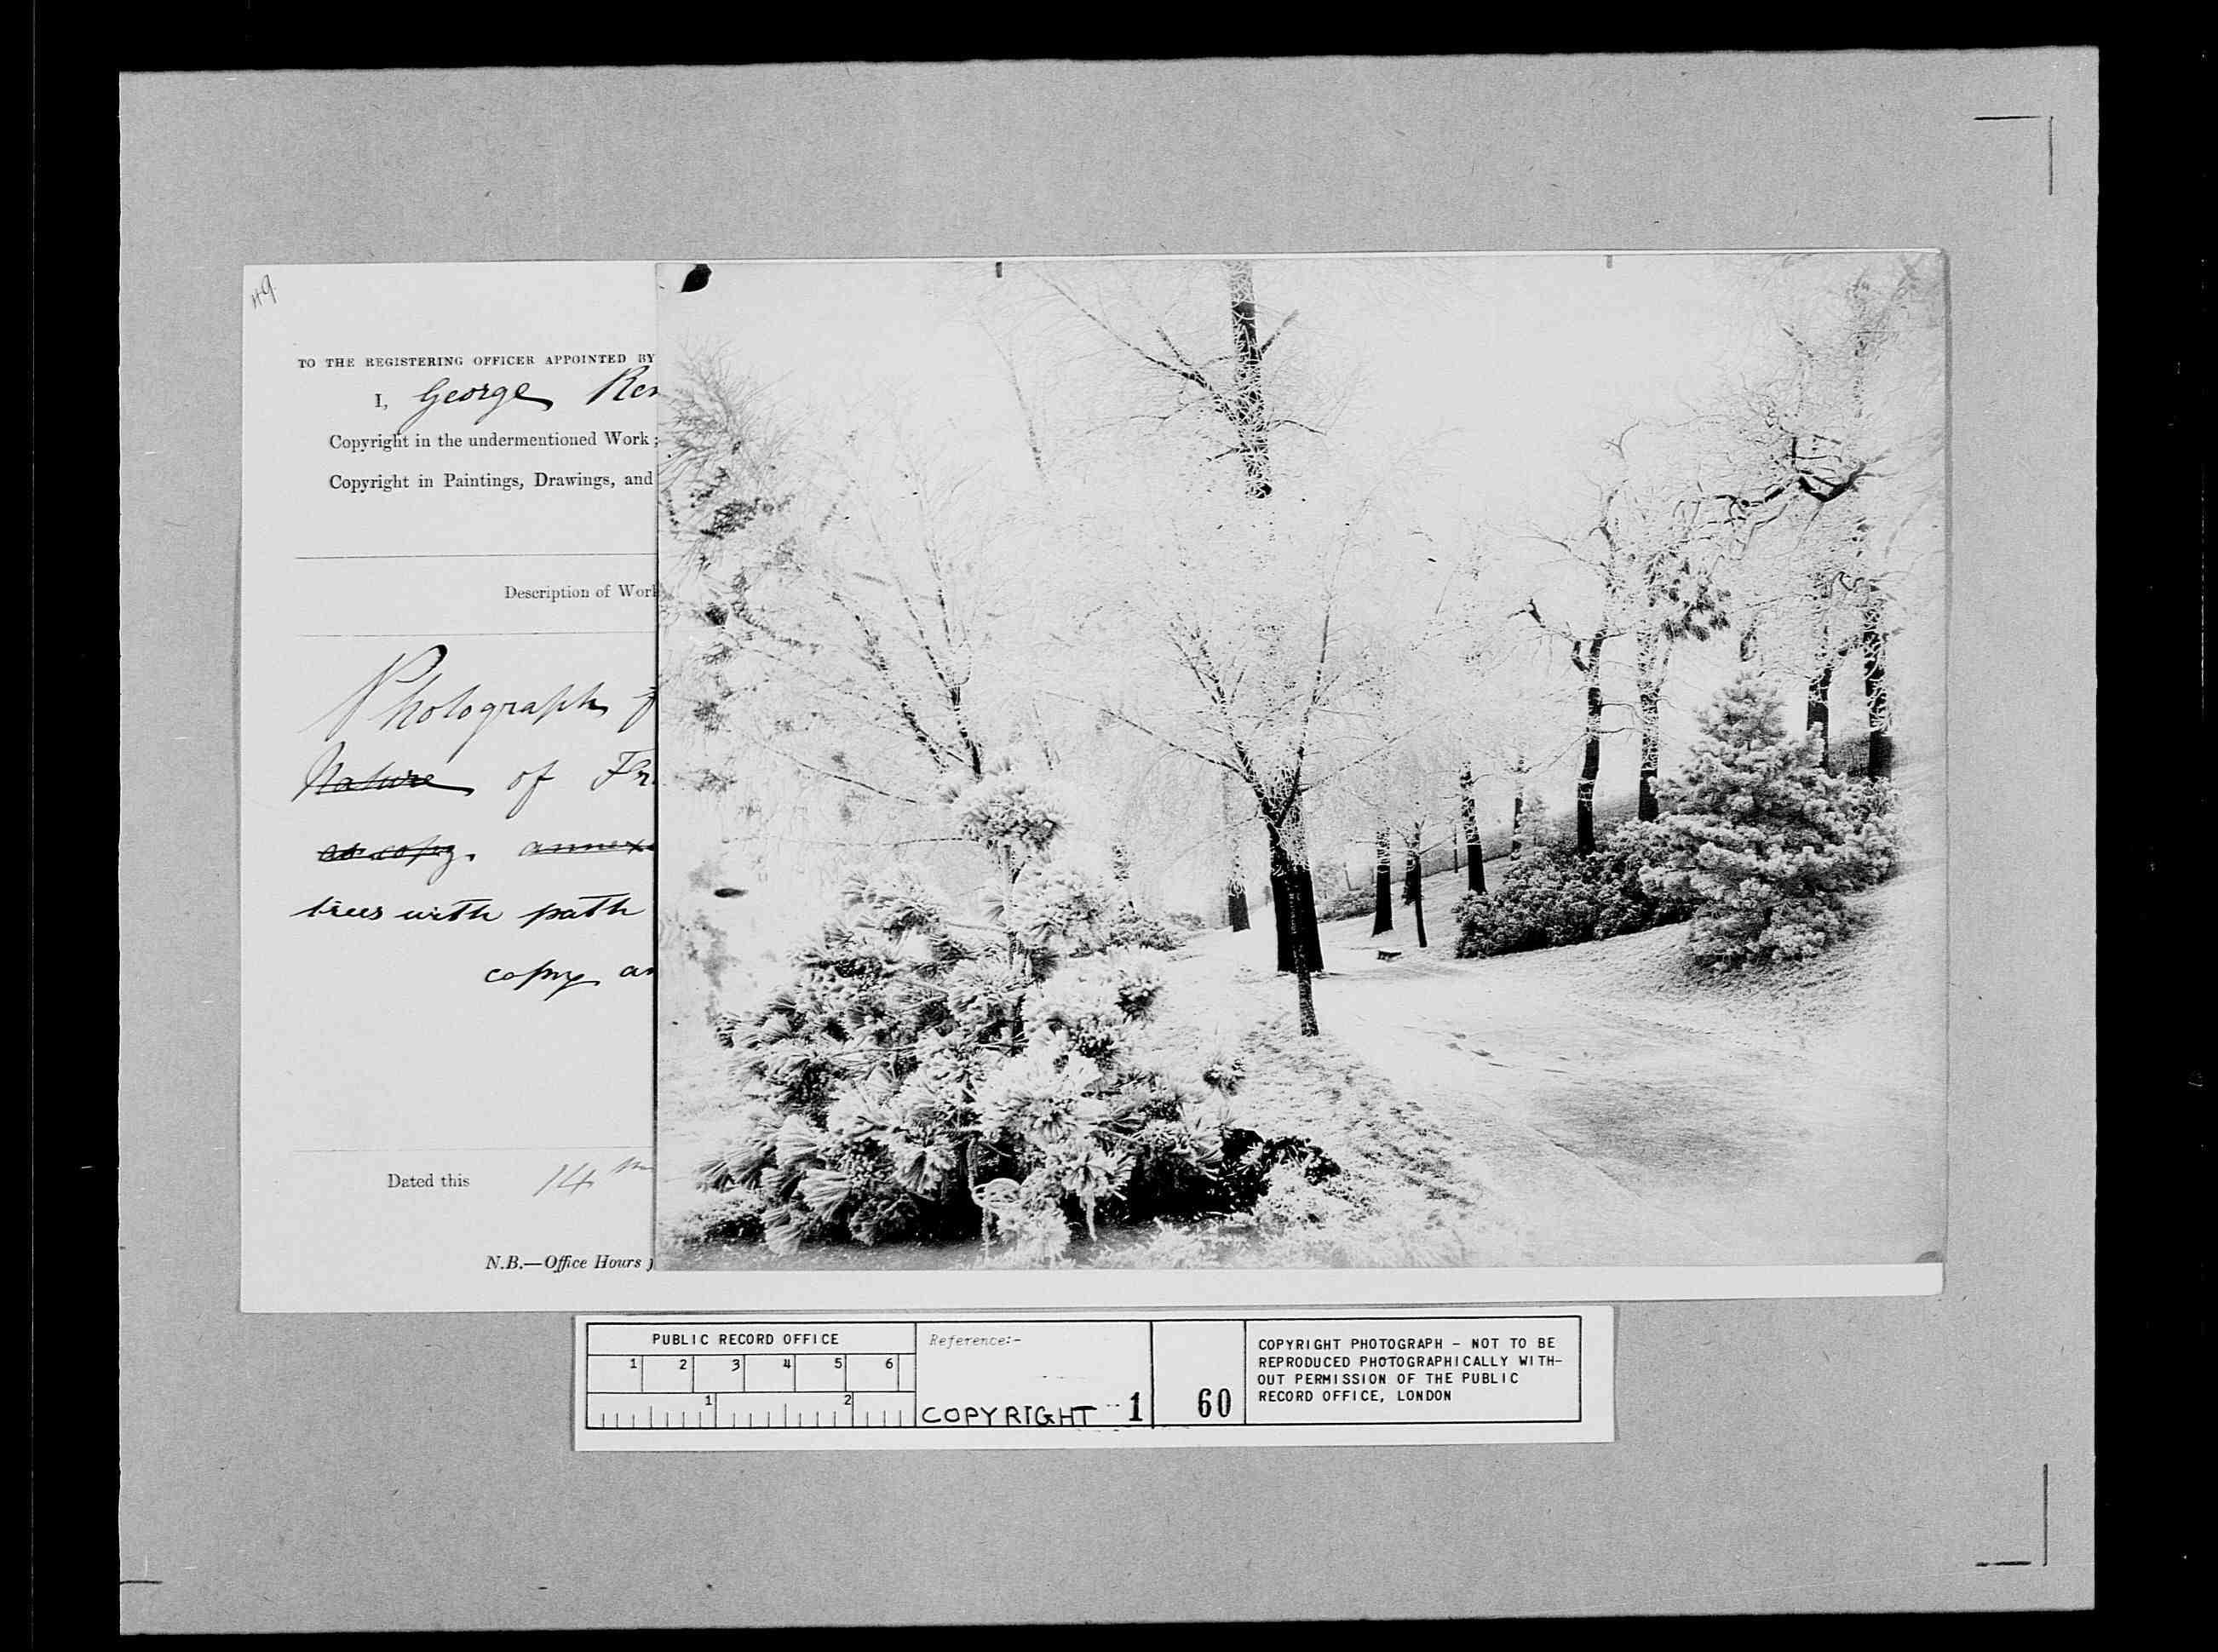 49
TO THE REGISTERING OFFICER APPOINTED BY
I, George
Copyright in the undermentioned Work;
Copyright in Paintings, Drawings, and
Description of Work
Photograph
Nature of
as copy. annexed
trees with path
copy
Dated this 14th
N.B.—Office Hours
PUBLIC RECORD OFFICE
1 2 3 4 5 6
1 2
Reference:-
COPYRIGHT 1 60
COPYRIGHT PHOTOGRAPH - NOT TO BE
REPRODUCED PHOTOGRAPHICALLY WITH-
OUT PERMISSION OF THE PUBLIC
RECORD OFFICE, LONDON